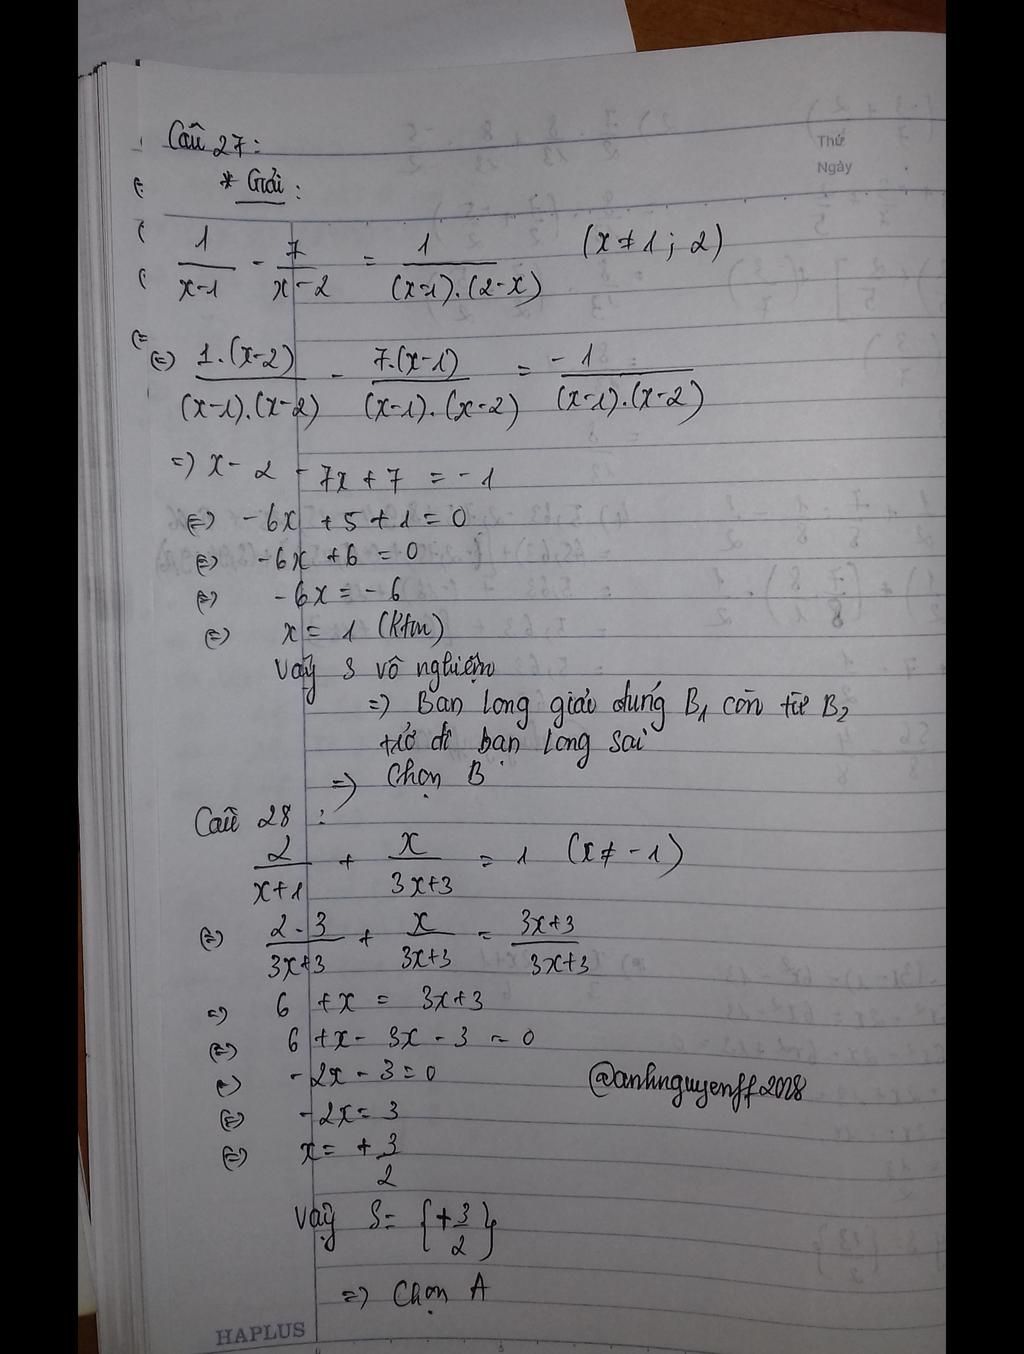 Câu 27:
* Giải:
Thứ
Ngày
1/(x-1) - 7/(x-2) = 1/((x-1).(2-x)) (x ≠ 1; 2)
(=) 1.(x-2)/((x-1).(x-2)) - 7.(x-1)/((x-1).(x-2)) = -1/((x-1).(x-2))
=) x - 2 - 7x + 7 = -1
(=) -6x + 5 + 1 = 0
(=) -6x + 6 = 0
(=) -6x = -6
(=) x = 1 (ktm)
Vậy S vô nghiệm
=) Bạn Long giải đúng B1 còn từ B2
trở đi bạn Long sai
=) Chọn B
Câu 28:
2/(x+1) + x/(3x+3) = 1 (x ≠ -1)
(=) 2.3/(3x+3) + x/(3x+3) = (3x+3)/(3x+3)
=) 6 + x = 3x+3
(=) 6 + x - 3x - 3 = 0
(=) -2x - 3 = 0
(=) -2x = 3
(=) x = + 3/2
@anhnguyenff2028
Vậy S = {+3/2}
=) Chọn A
HAPLUS